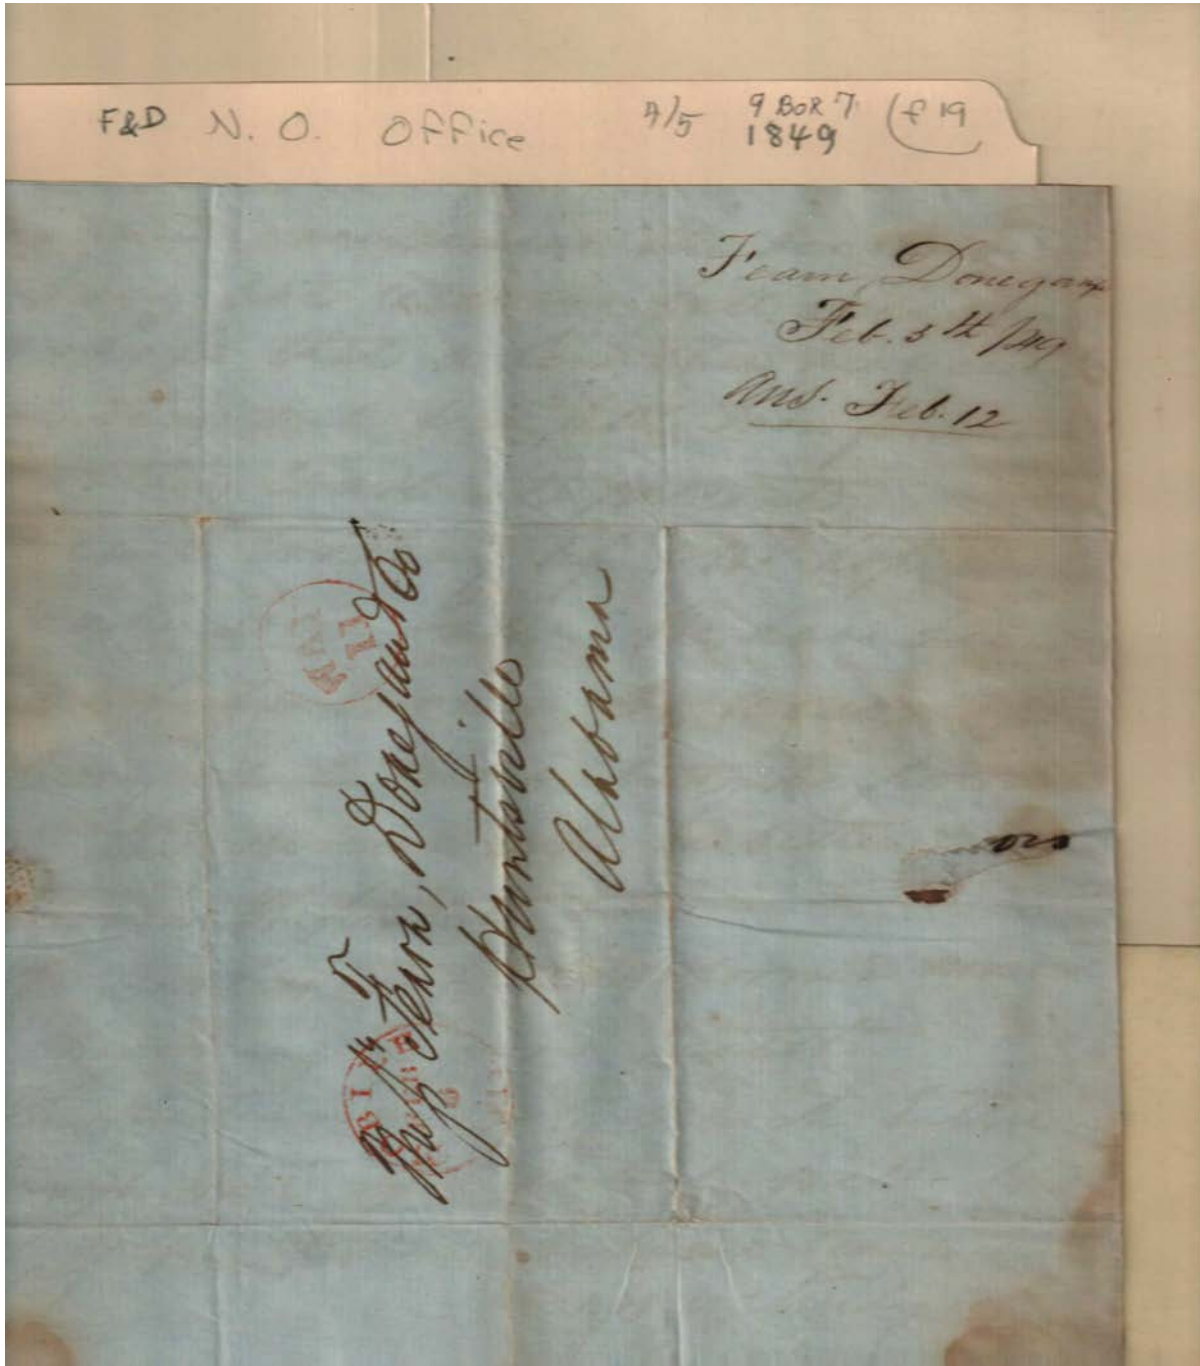 F&D N. O. Office 4/5 9 BOR 7 (f 19
1849
Fearn, Donegan
Feb. 5th /49
Ans. Feb. 12
Fearn, Donegan & Co
Huntsville
Alabama
11